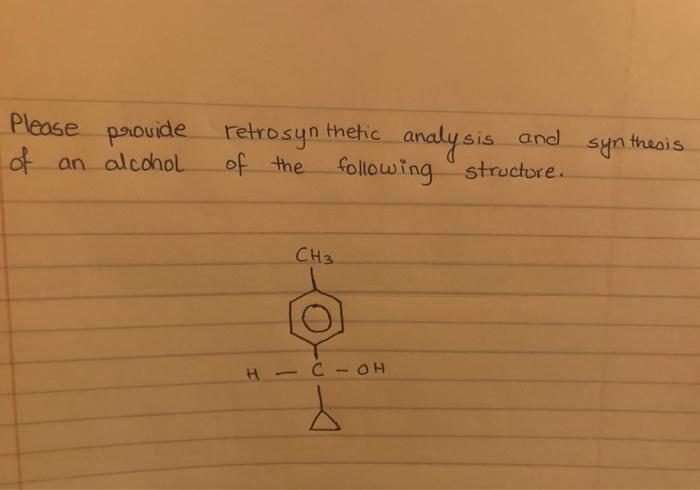 Please provide retrosynthetic analysis and synthesis
of an alcohol of the following structure.
CH3
H - C - OH